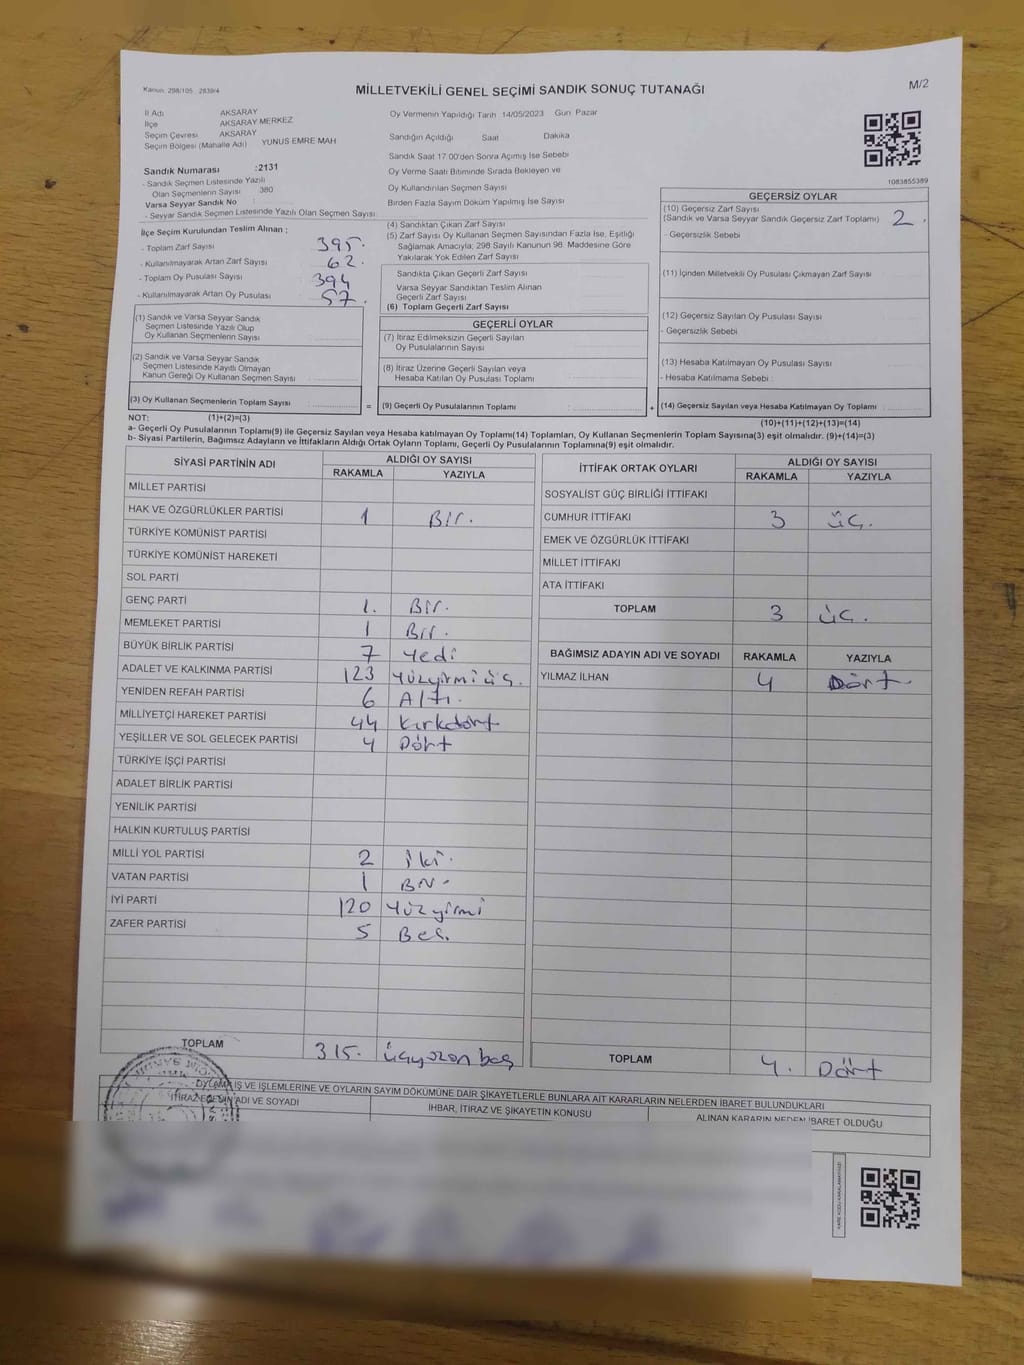 Kanun: 298/105, 2839/4
MİLLETVEKİLİ GENEL SEÇİMİ SANDIK SONUÇ TUTANAĞI
M/2
İl Adı AKSARAY
İlçe AKSARAY MERKEZ
Seçim Çevresi AKSARAY
Seçim Bölgesi (Mahalle Adı) YUNUS EMRE MAH
Sandık Numarası :2131
- Sandık Seçmen Listesinde Yazılı
Olan Seçmenlerin Sayısı 380
Varsa Seyyar Sandık No :
- Seyyar Sandık Seçmen Listesinde Yazılı Olan Seçmen Sayısı :
Oy Vermenin Yapıldığı Tarih 14/05/2023 Gün Pazar
Sandığın Açıldığı Saat Dakika
Sandık Saat 17.00'den Sonra Açımış İse Sebebi
Oy Verme Saati Bitiminde Sırada Bekleyen ve
Oy Kullandırılan Seçmen Sayısı
Birden Fazla Sayım Döküm Yapılmış İse Sayısı
1083855389
İlçe Seçim Kurulundan Teslim Alınan ;
- Toplam Zarf Sayısı 395.
- Kullanılmayarak Artan Zarf Sayısı 62.
- Toplam Oy Pusulası Sayısı 394
- Kullanılmayarak Artan Oy Pusulası 57.
(1) Sandık ve Varsa Seyyar Sandık
Seçmen Listesinde Yazılı Olup
Oy Kullanan Seçmenlerin Sayısı
(2) Sandık ve Varsa Seyyar Sandık
Seçmen Listesinde Kayıtlı Olmayan
Kanun Gereği Oy Kullanan Seçmen Sayısı
(3) Oy Kullanan Seçmenlerin Toplam Sayısı :
(1)+(2)=(3)
(4) Sandıktan Çıkan Zarf Sayısı
(5) Zarf Sayısı Oy Kullanan Seçmen Sayısından Fazla İse, Eşitliği
Sağlamak Amacıyla; 298 Sayılı Kanunun 98. Maddesine Göre
Yakılarak Yok Edilen Zarf Sayısı
Sandıkta Çıkan Geçerli Zarf Sayısı
Varsa Seyyar Sandıktan Teslim Alınan
Geçerli Zarf Sayısı
(6) Toplam Geçerli Zarf Sayısı
GEÇERLİ OYLAR
(7) İtiraz Edilmeksizin Geçerli Sayılan
Oy Pusulalarının Sayısı
(8) İtiraz Üzerine Geçerli Sayılan veya
Hesaba Katılan Oy Pusulası Toplamı
= (9) Geçerli Oy Pusulalarının Toplamı :
GEÇERSİZ OYLAR
(10) Geçersiz Zarf Sayısı
(Sandık ve Varsa Seyyar Sandık Geçersiz Zarf Toplamı) 2
- Geçersizlik Sebebi
(11) İçinden Milletvekili Oy Pusulası Çıkmayan Zarf Sayısı
(12) Geçersiz Sayılan Oy Pusulası Sayısı
- Geçersizlik Sebebi
(13) Hesaba Katılmayan Oy Pusulası Sayısı
- Hesaba Katılmama Sebebi :
+ (14) Geçersiz Sayılan veya Hesaba Katılmayan Oy Toplamı :
(10)+(11)+(12)+(13)=(14)
NOT:
a- Geçerli Oy Pusulalarının Toplamı(9) ile Geçersiz Sayılan veya Hesaba katılmayan Oy Toplamı(14) Toplamları, Oy Kullanan Seçmenlerin Toplam Sayısına(3) eşit olmalıdır. (9)+(14)=(3)
b- Siyasi Partilerin, Bağımsız Adayların ve İttifakların Aldığı Ortak Oyların Toplamı, Geçerli Oy Pusulalarının Toplamına(9) eşit olmalıdır.
SİYASİ PARTİNİN ADI ALDIĞI OY SAYISI
RAKAMLA YAZIYLA
MİLLET PARTİSİ
HAK VE ÖZGÜRLÜKLER PARTİSİ 1 Bir.
TÜRKİYE KOMÜNİST PARTİSİ
TÜRKİYE KOMÜNİST HAREKETİ
SOL PARTİ
GENÇ PARTİ 1. Bir.
MEMLEKET PARTİSİ 1 Bir.
BÜYÜK BİRLİK PARTİSİ 7 Yedi
ADALET VE KALKINMA PARTİSİ 123 Yüzyirmi üç.
YENİDEN REFAH PARTİSİ 6 Altı.
MİLLİYETÇİ HAREKET PARTİSİ 44 Kırkdört
YEŞİLLER VE SOL GELECEK PARTİSİ 4 Dört
TÜRKİYE İŞÇİ PARTİSİ
ADALET BİRLİK PARTİSİ
YENİLİK PARTİSİ
HALKIN KURTULUŞ PARTİSİ
MİLLİ YOL PARTİSİ 2 İki.
VATAN PARTİSİ 1 Bir.
İYİ PARTİ 120 Yüzyirmi
ZAFER PARTİSİ 5 Beş.
TOPLAM 315. üçyüzon beş
İTTİFAK ORTAK OYLARI ALDIĞI OY SAYISI
RAKAMLA YAZIYLA
SOSYALİST GÜÇ BİRLİĞİ İTTİFAKI
CUMHUR İTTİFAKI 3 üç.
EMEK VE ÖZGÜRLÜK İTTİFAKI
MİLLET İTTİFAKI
ATA İTTİFAKI
TOPLAM 3 üç.
BAĞIMSIZ ADAYIN ADI VE SOYADI RAKAMLA YAZIYLA
YILMAZ İLHAN 4 Dört.
TOPLAM 4. Dört
OYLAMA İŞ VE İŞLEMLERİNE VE OYLARIN SAYIM DÖKÜMÜNE DAİR ŞİKAYETLERLE BUNLARA AİT KARARLARIN NELERDEN İBARET BULUNDUKLARI
İTİRAZ EDENİN ADI VE SOYADI İHBAR, İTİRAZ VE ŞİKAYETİN KONUSU ALINAN KARARIN NEDEN İBARET OLDUĞU